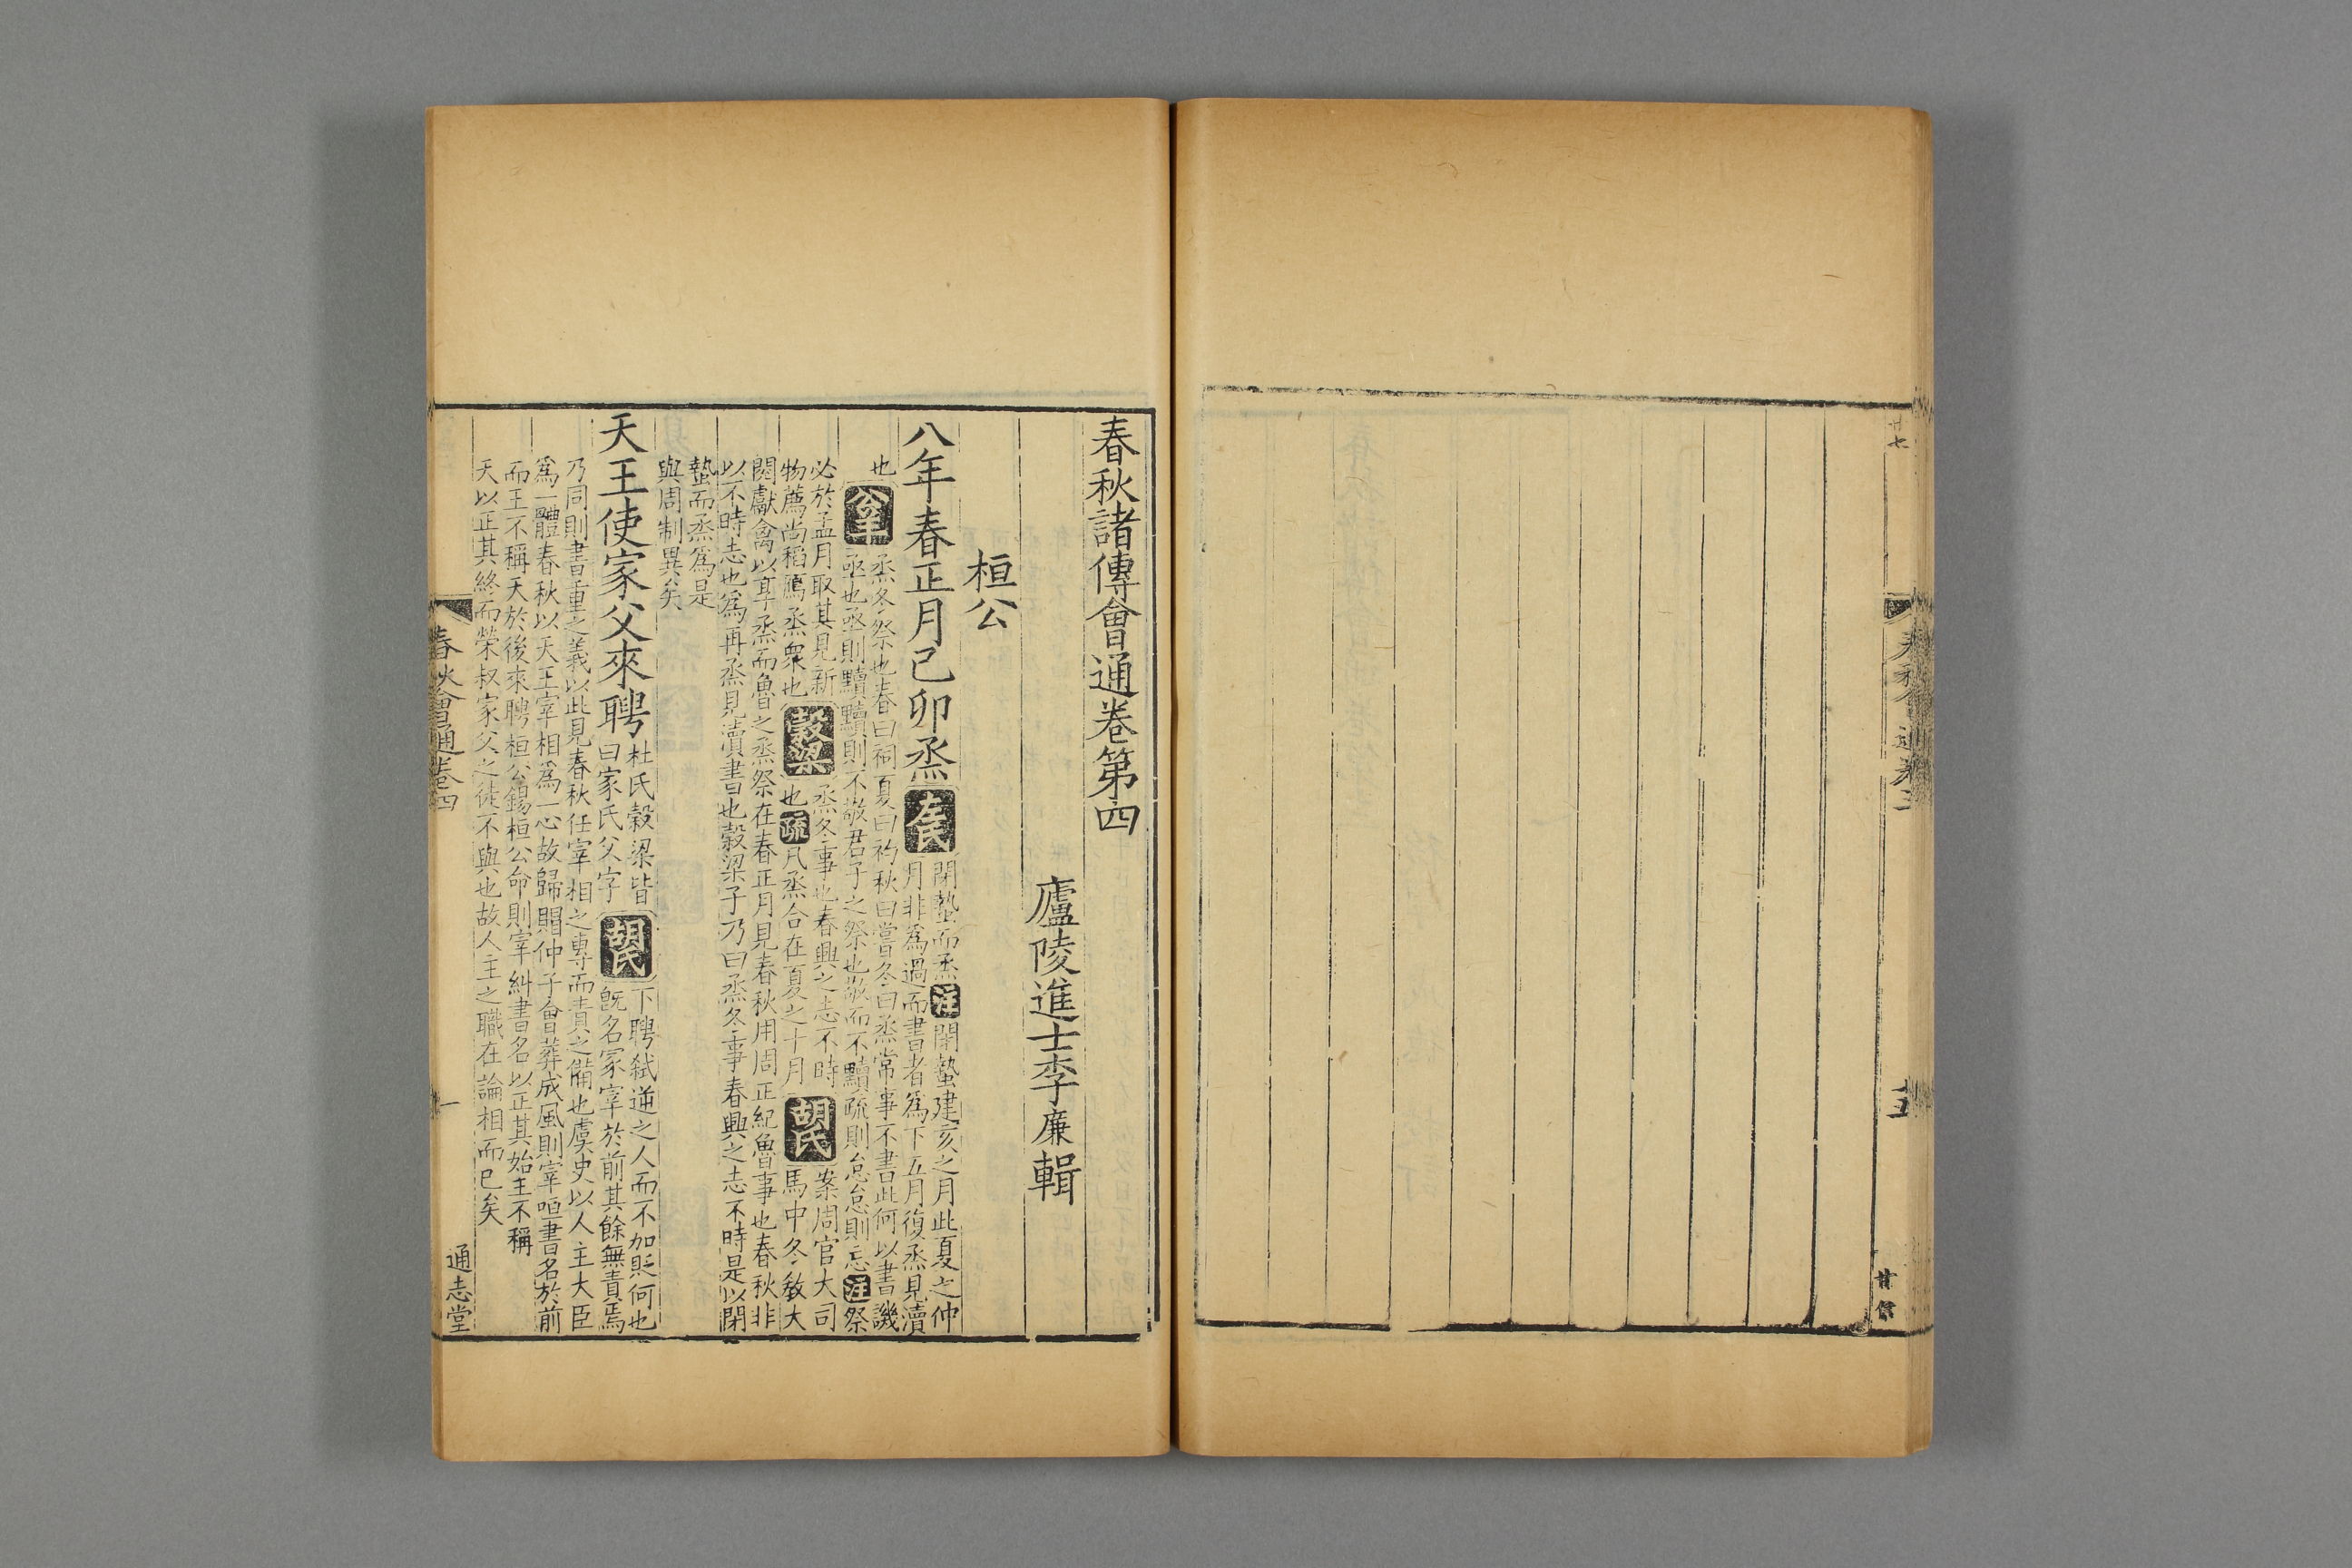 春秋會通卷三
十五
春秋諸傳會通卷第四
廬陵進士李廉輯
桓公
八年春正月己卯烝
左氏
閉蟄而烝注閉蟄建亥之月此夏之仲
月非爲過而書者爲下五月復烝見瀆
也
公羊
烝冬祭也春曰祠夏曰礿秋曰嘗冬曰烝常事不書此何以書譏
亟也亟則黷黷則不敬君子之祭也敬而不黷疏則怠怠則忘注祭
必於孟月取其見新
物薦尚稻鴈烝衆也
穀梁
烝冬事也春興之志不時
也疏凡烝合在夏之十月
胡氏
案周官大司
馬中冬教大
閱獻禽以享烝而魯之烝祭在春正月見春秋用周正紀魯事也春秋非
以不時志也爲再烝見瀆書也穀梁子乃曰烝冬事春興之志不時是以閉
蟄而烝爲是
與周制異矣
天王使家父來聘
杜氏穀梁皆
曰家氏父字
胡氏
下聘弑逆之人而不加貶何也
旣名冢宰於前其餘無責焉
乃同則書重之義以此見春秋任宰相之專而責之備也虞史以人主大臣
爲一體春秋以天王宰相爲一心故歸賵仲子會葬成風則宰咺書名於前
而王不稱天於後來聘桓公錫桓公命則宰糾書名以正其始王不稱
天以正其終而榮叔家父之徒不與也故人主之職在論相而已矣
春秋會通卷四
一
通志堂